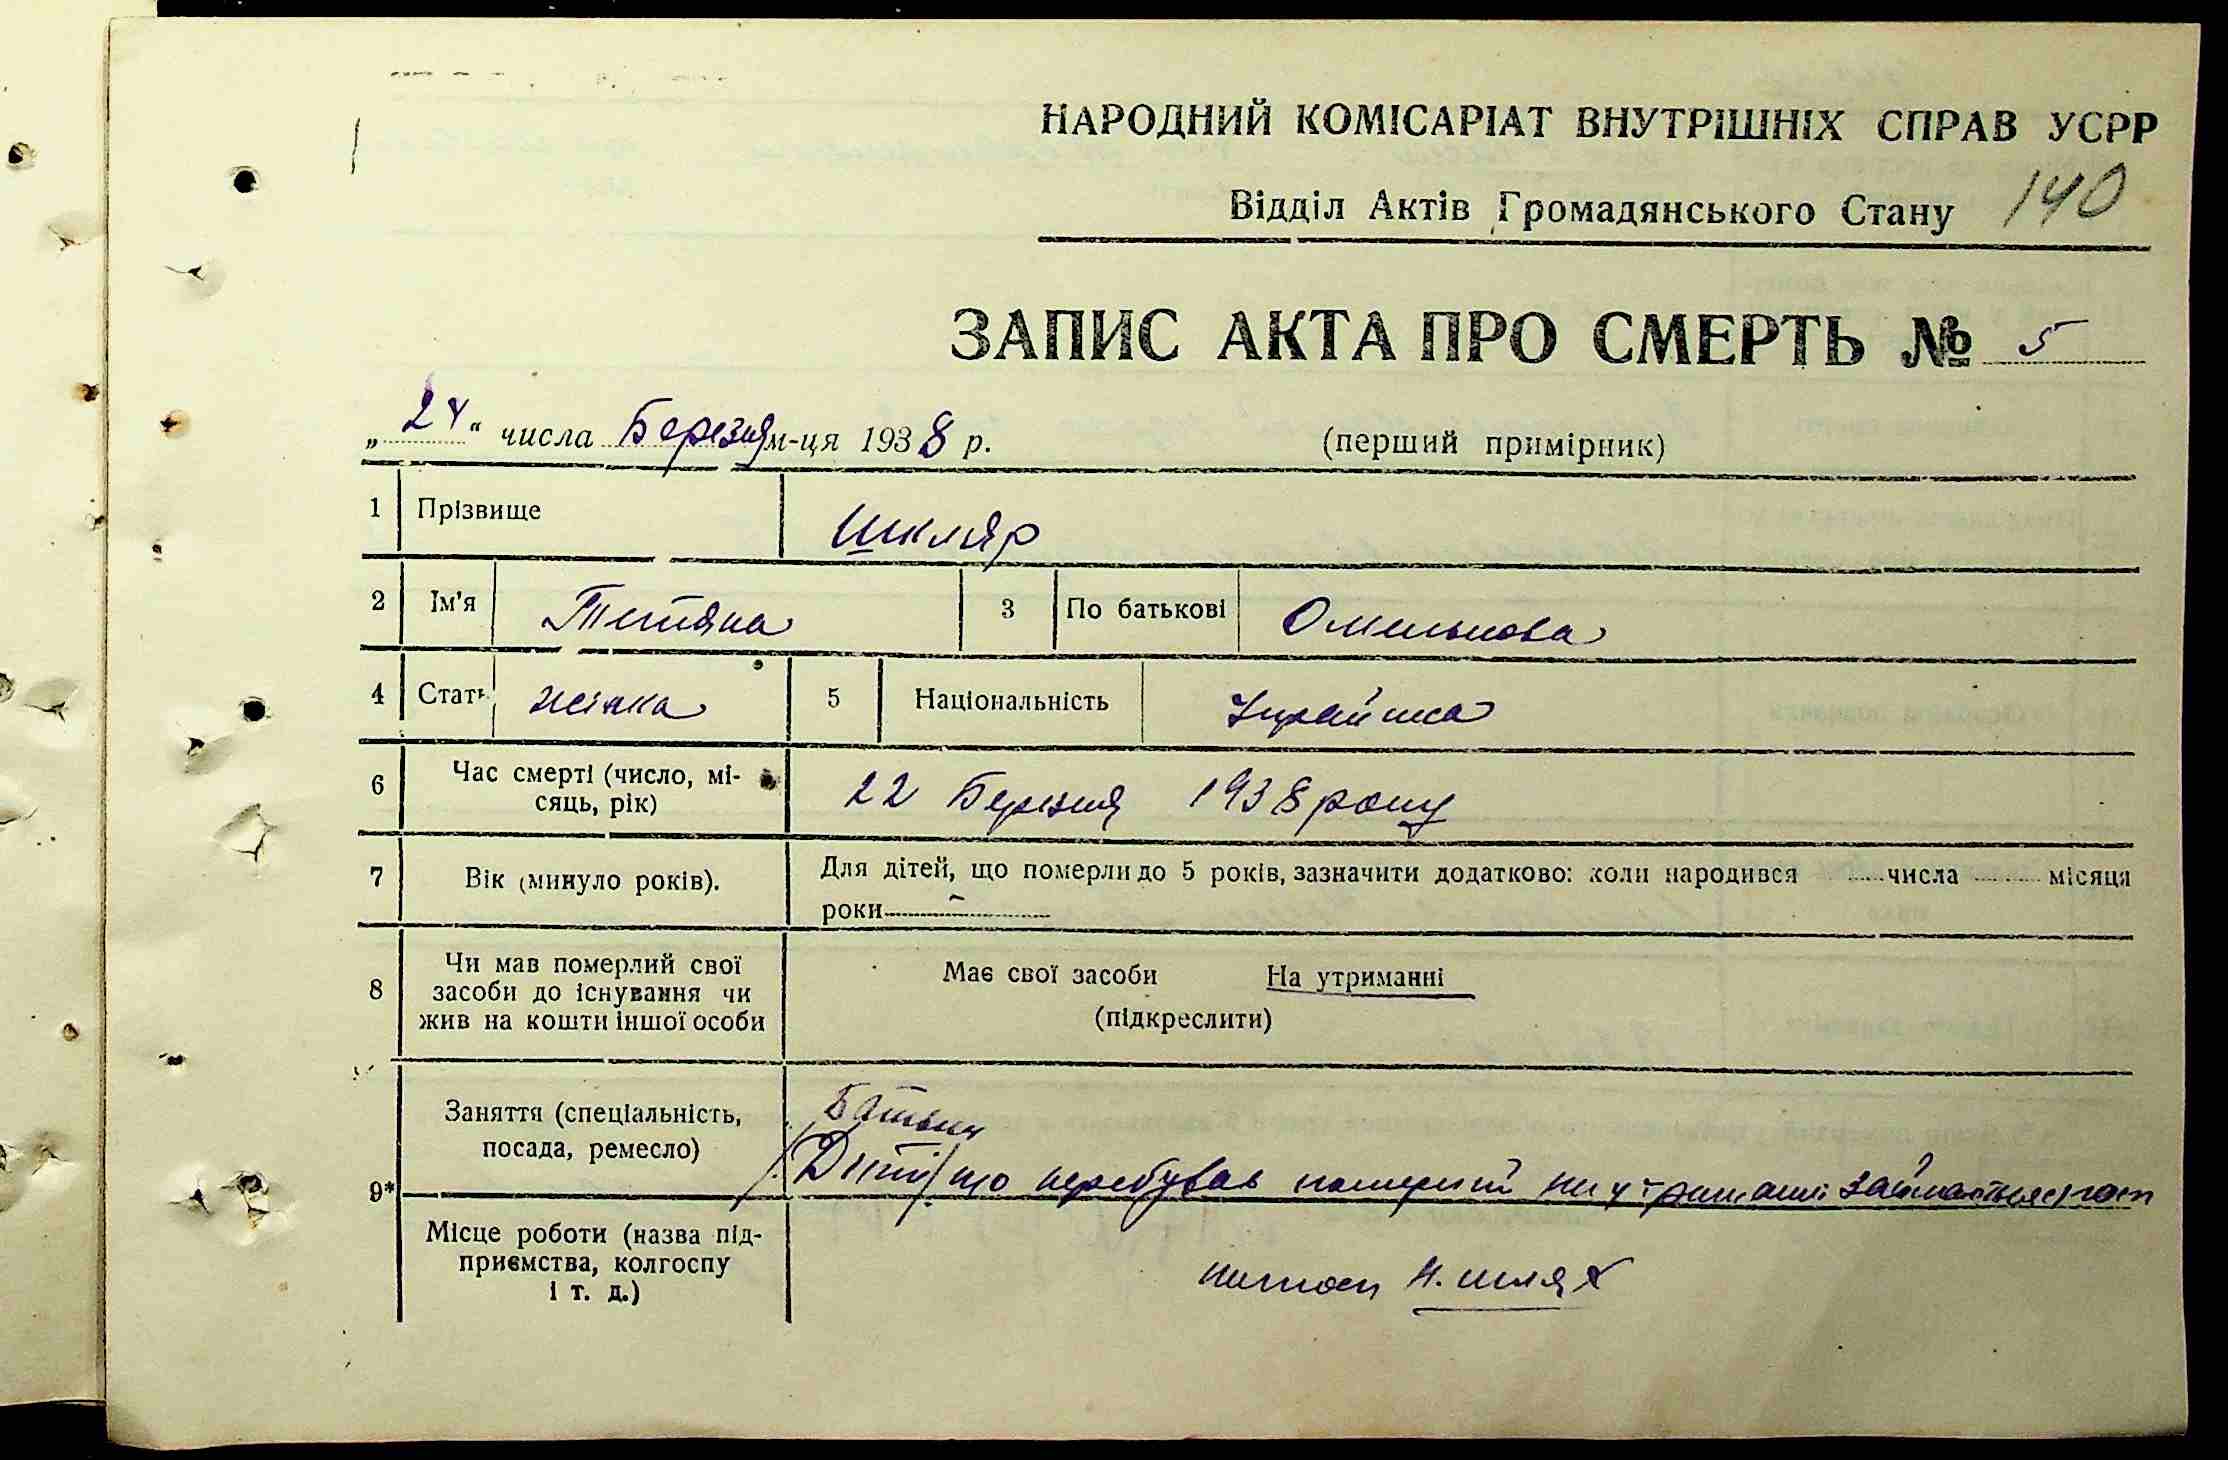 НАРОДНИЙ КОМІСАРІАТ ВНУТРІШНІХ СПРАВ УСРР
Відділ Актів Громадянського Стану 140
ЗАПИС АКТА ПРО СМЕРТЬ № 5
„24“ числа Березня м-ця 1938 р. (перший примірник)
1 Прізвище Шкляр
2 Ім'я Тетяна 3 По батькові Омелькова
4 Стать жінка 5 Національність Украінка
6 Час смерті (число, мі-
сяць, рік) 22 Березня 1938 року
7 Вік (минуло років). Для дітей, що померли до 5 років, зазначити додатково: коли народився числа місяця
роки -
8 Чи мав померлий свої
засоби до існування чи
жив на кошти іншої особи
Має свої засоби На утриманні
(підкреслити)
9* Заняття (спеціальність,
посада, ремесло)
Батьки
/Діти/ що перебував померлий на утриманні
Місце роботи (назва під-
приємства, колгоспу
і т. д.)
Н. шлях